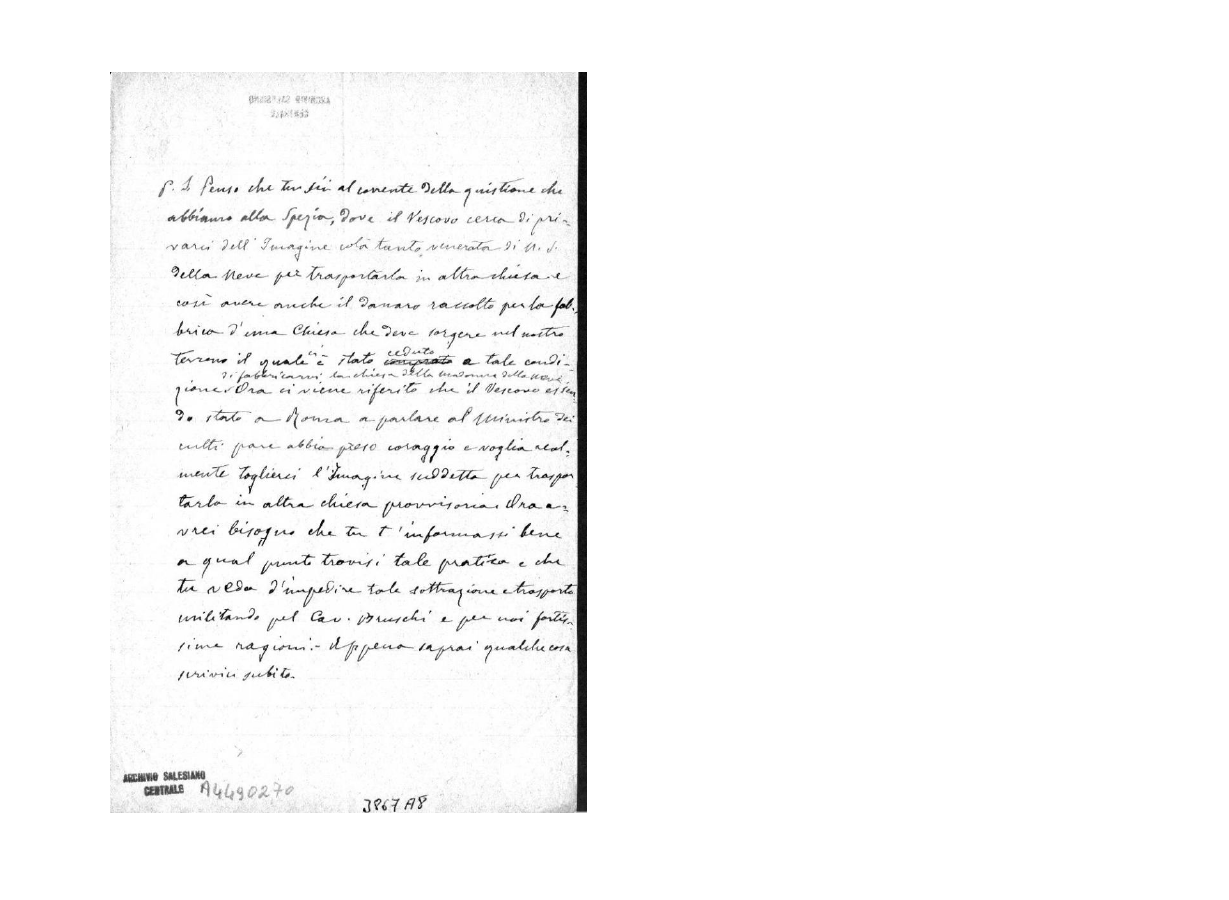 ARCHIVIO SALESIANO
CENTRALE
P. S. Penso che tu sii al corrente della quistione che
abbiamo alla Spezia, dove il Vescovo cerca di pri-
varci dell'Imagine colà tanto venerata di N. S.
della Neve per trasportarla in altra chiesa e
così avere anche il danaro raccolto per la fab-
brica d'una Chiesa che deve sorgere nel nostro
ceduto
terreno il quale ci è stato comprato a tale condi-
di fabbricarvi la chiesa della Madonna della neve
zione. Ora ci viene riferito che il Vescovo essen-
do stato a Roma a parlare al Ministro dei
culti pare abbia preso coraggio e voglia real-
mente toglierci l'Imagine suddetta per traspor
tarla in altra chiesa provvisoria. Ora a-
vrei bisogno che tu t'informassi bene
a qual punto trovisi tale pratica e che
tu veda d'impedire tale sottrazione e trasporto
militando pel Cav. Bruschi e per noi fortis-
sime ragioni.- Appena saprai qualche cosa
scrivici subito.
ARCHIVIO SALESIANO
CENTRALE
A4490270
3867 A8